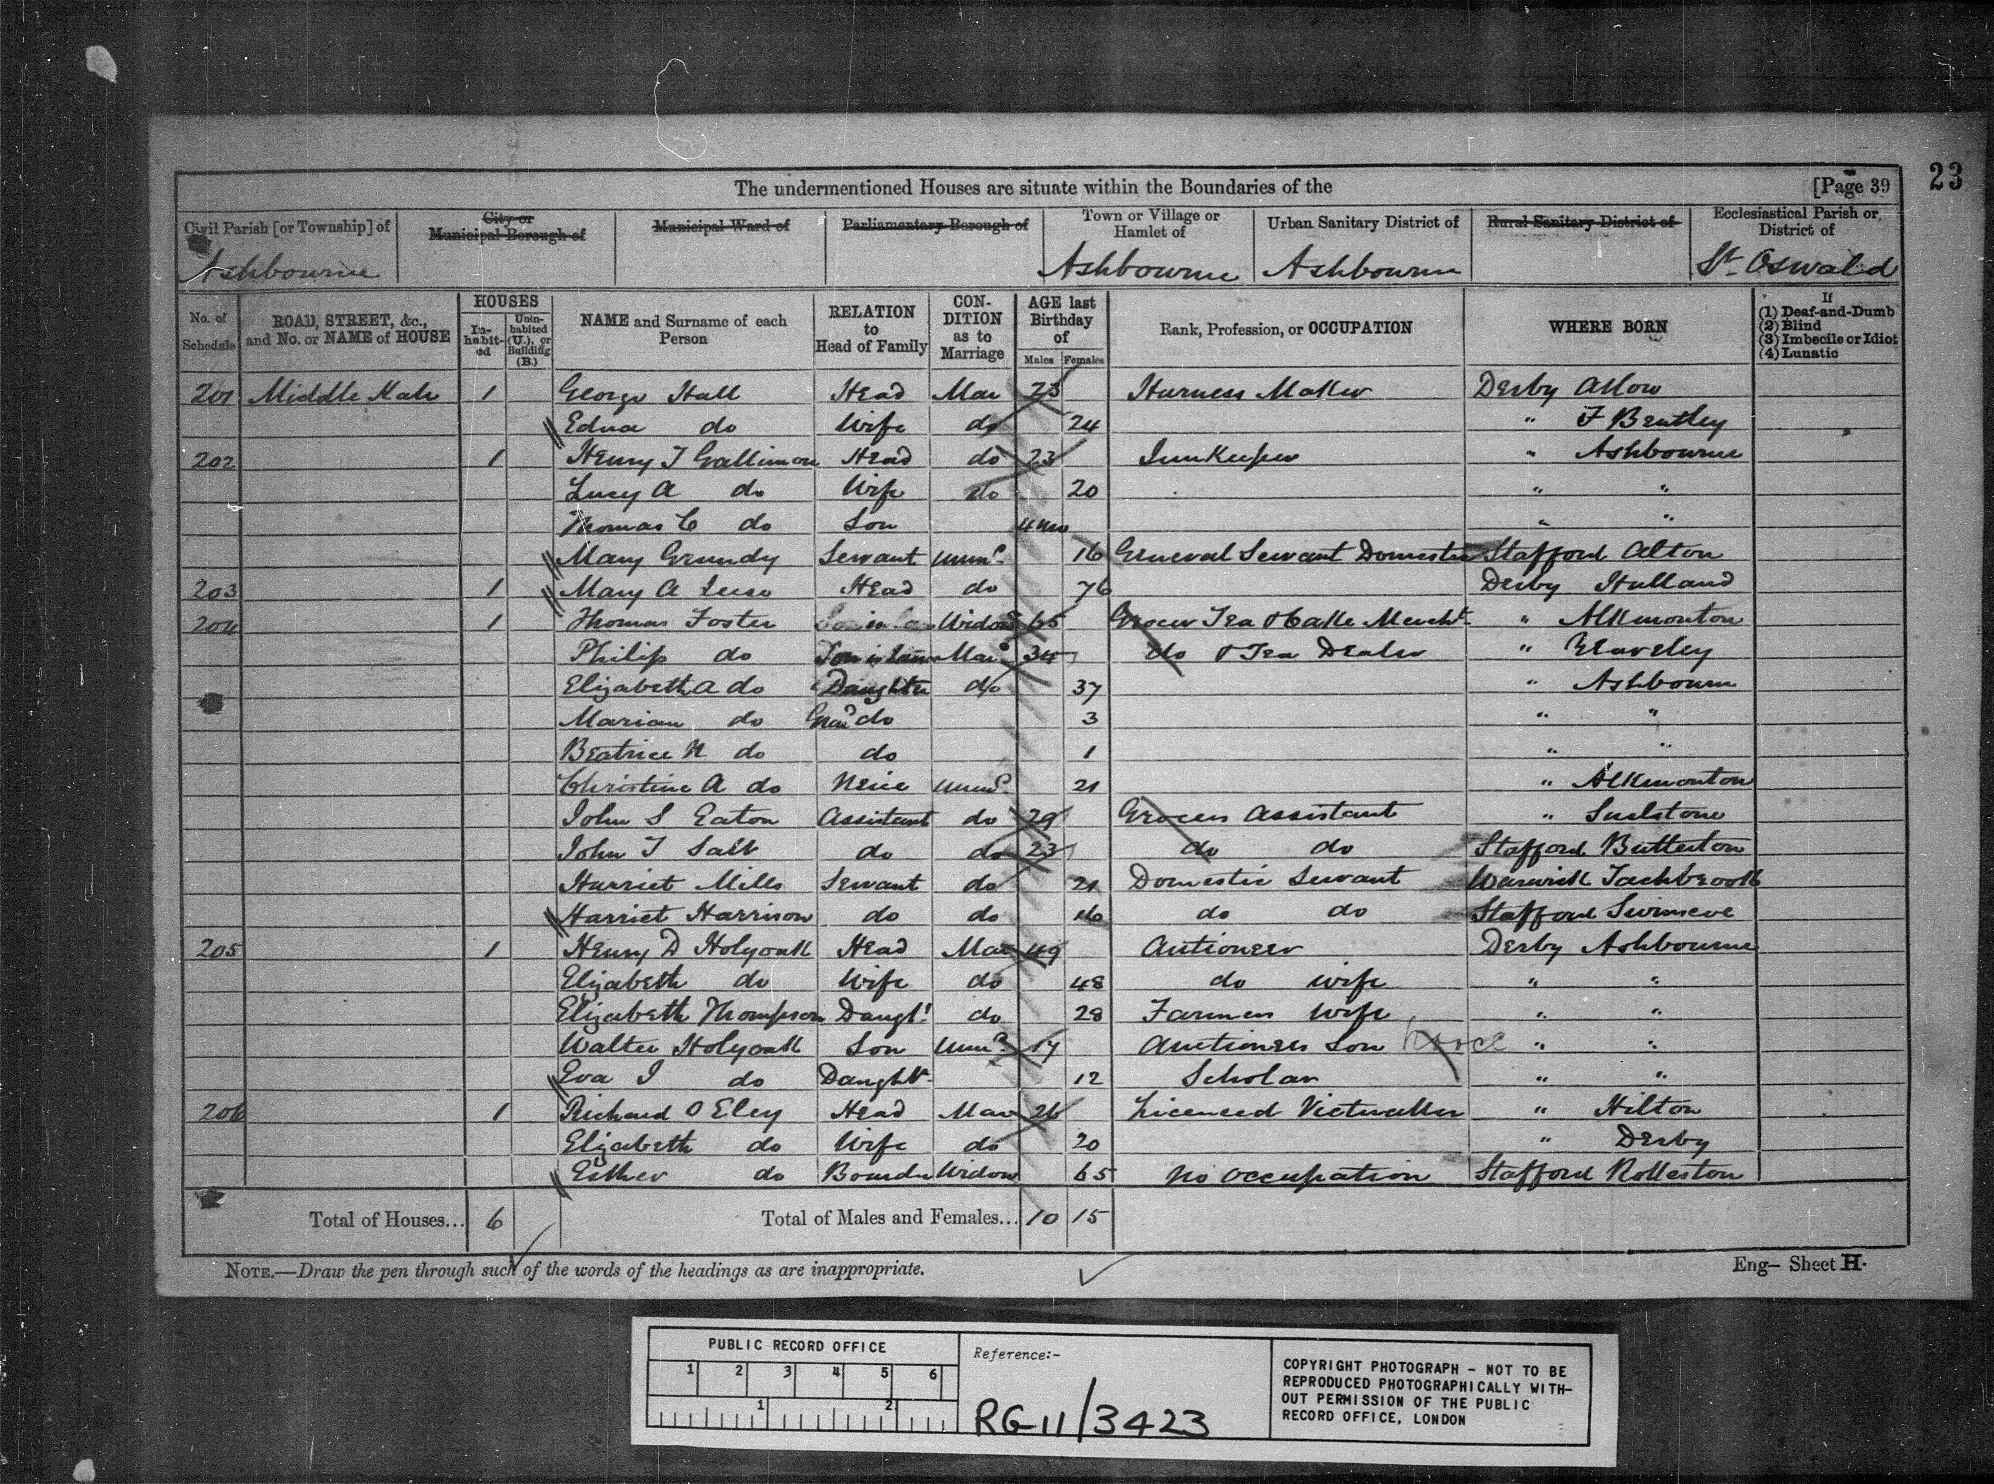 23
The undermentioned Houses are situate within the Boundaries of the [Page 39
Civil Parish [or Township] of
Ashbourne
City or Municipal Borough of
Municipal Ward of
Parliamentary Borough of
Town or Village or Hamlet of
Ashbourne
Urban Sanitary District of
Ashbourne
Rural Sanitary District of
Ecclesiastical Parish or District of
St. Oswald
No. of Schedule
ROAD, STREET, &c., and No. or NAME of HOUSE
HOUSES
In-habit-ed
Unin-habited (U.), or Building (B.)
NAME and Surname of each Person
RELATION to Head of Family
CON-DITION as to Marriage
AGE last Birthday of
Males Females
Rank, Profession, or OCCUPATION
WHERE BORN
If
(1) Deaf-and-Dumb
(2) Blind
(3) Imbecile or Idiot
(4) Lunatic
201 Middle 1 George Hall Head Mar 23 Harness Maker Derby
Edna do Wife do 24 " F Bentley
202 1 Henry T Head do 23 Innkeeper " Ashbourne
Lucy A do Wife do 20 " "
Thomas C do Son 4 mo " "
Mary Grundy Servant Unm 16 General Servant Domestic Stafford Alton
203 1 Mary A Head do 76 Derby Hulland
204 1 Thomas Foster Widow 65 Grocer Tea & Merch " Alkmonton
Philip do Son in law Mar 34 do & Tea Dealer "
Elizabeth A do Daughter do 37 " Ashbourn
Marian do Gran do 3 " "
Beatrice N do do 1 " "
Christine A do Neice Unm 21 " Alkmonton
John S Eaton Assistant do 29 Grocers Assistant "
John T Salt do do 23 do do Stafford Butterton
Harriet Mills Servant do 21 Domestic Servant Warwick Tachbrook
Harriet Harrison do do 16 do do Stafford
205 1 Henry D Holyoak Head Mar 49 Autioneer Derby Ashbourne
Elizabeth do Wife do 48 do wife " "
Elizabeth Thompson Daught do 28 Farmers wife " "
Walter Holyoak Son Unm 17 Auctioneers Son " "
Eva I do Daught 12 Scholar " "
206 1 Richard O Eley Head Mar 26 Licenced Victualler " Hilton
Elizabeth do Wife do 20 " Derby
Esther do Widow 65 No occupation Stafford Rolleston
Total of Houses... 6 Total of Males and Females... 10 15
NOTE.—Draw the pen through such of the words of the headings as are inappropriate.
Eng— Sheet H.
PUBLIC RECORD OFFICE
1 2 3 4 5 6
1 2
Reference:-
RG 11/3423
COPYRIGHT PHOTOGRAPH - NOT TO BE
REPRODUCED PHOTOGRAPHICALLY WITH-
OUT PERMISSION OF THE PUBLIC
RECORD OFFICE, LONDON